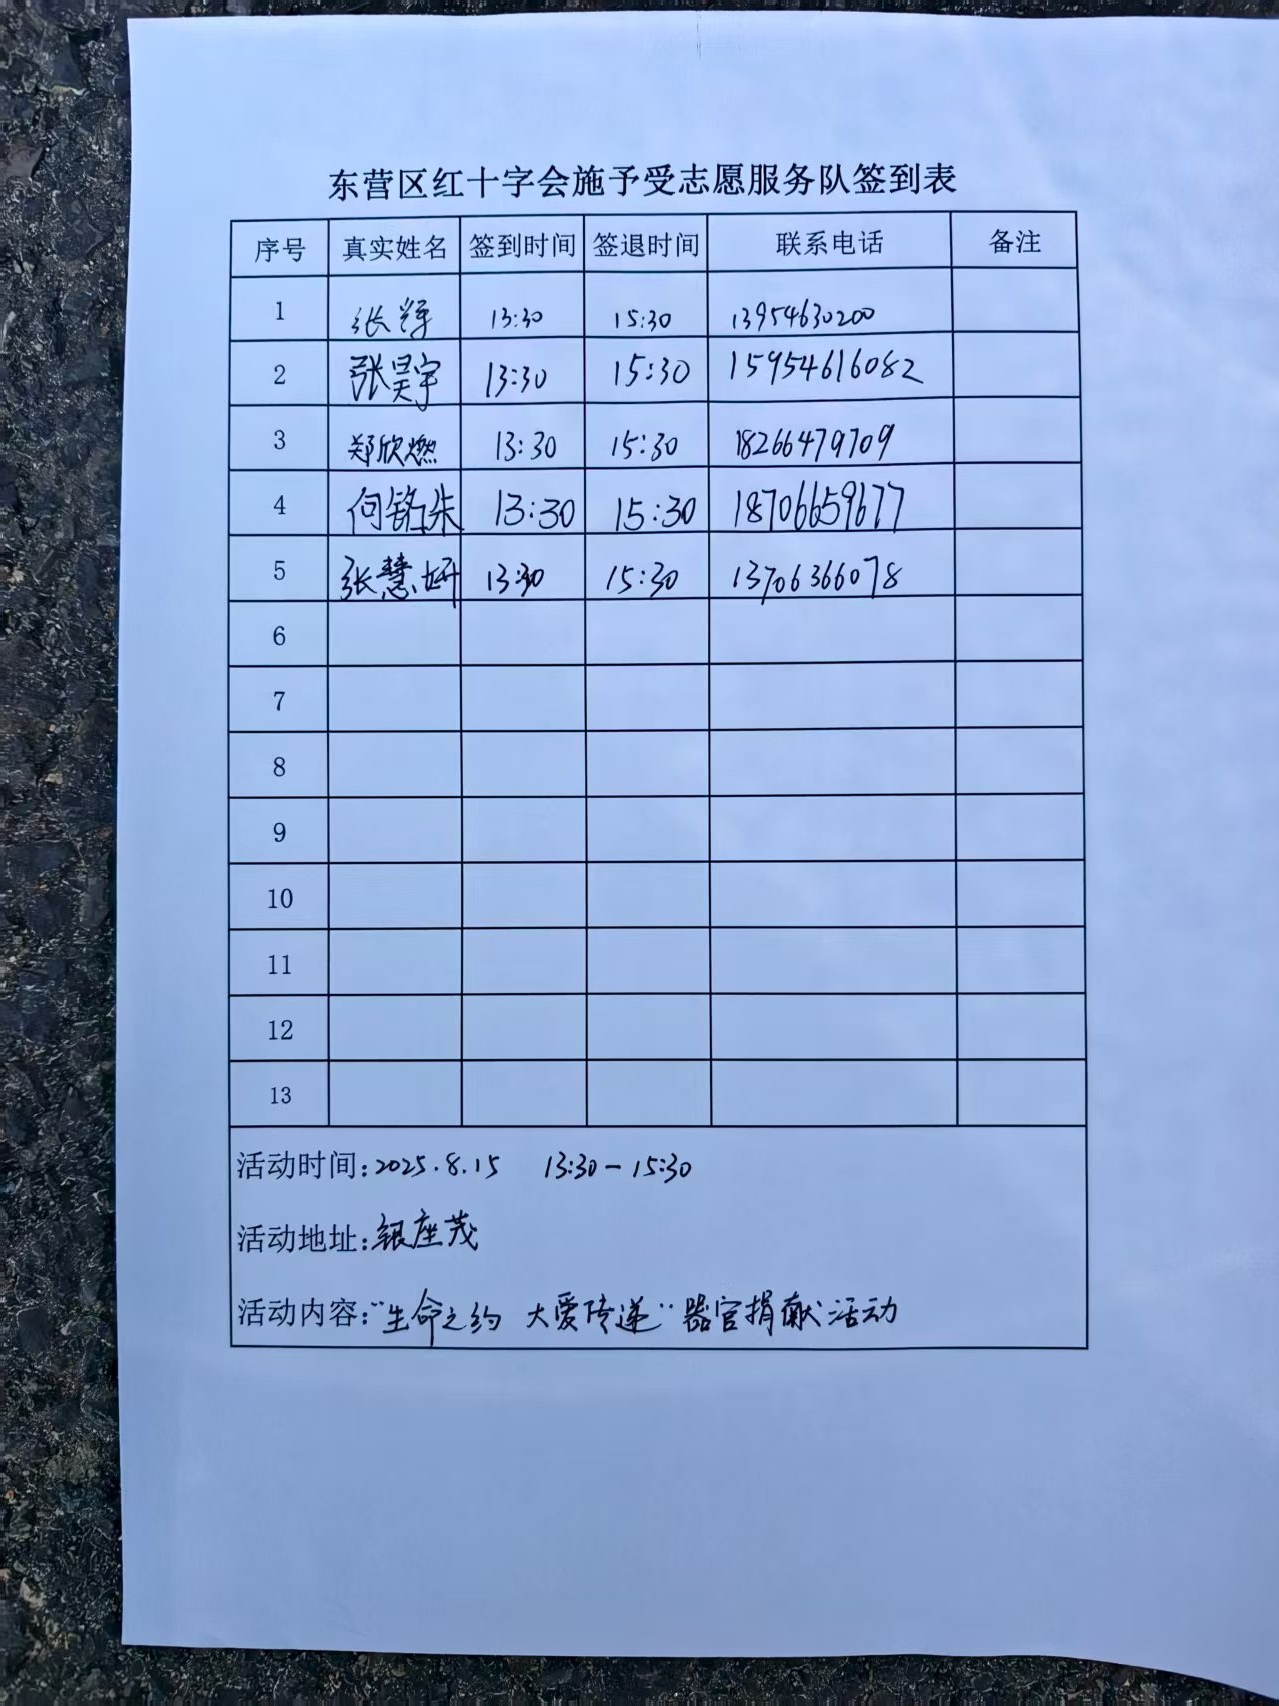 东营区红十字会施予受志愿服务队签到表
序号 真实姓名 签到时间 签退时间 联系电话 备注
1 张 13:30 15:30 13954630200
2 张昊宇 13:30 15:30 15954616082
3 郑欣燃 13:30 15:30 18266479709
4 何铭朱 13:30 15:30 18706659677
5 张慧妍 13:30 15:30 13706366078
6
7
8
9
10
11
12
13
活动时间:2025.8.15 13:30-15:30
活动地址:银座茂
活动内容:"生命之约 大爱传递"器官捐献活动